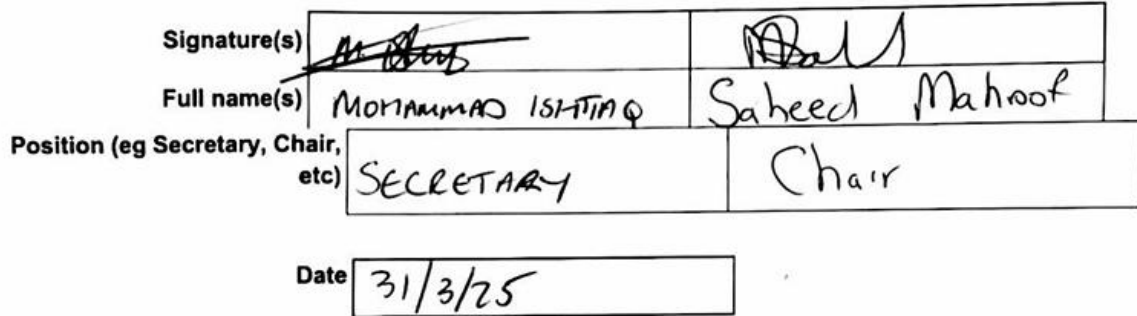 Signature(s)
Full name(s) MOHAMMAD ISHTIAQ Saheed Mahroof
Position (eg Secretary, Chair,
etc) SECRETARY Chair
Date 31/3/25